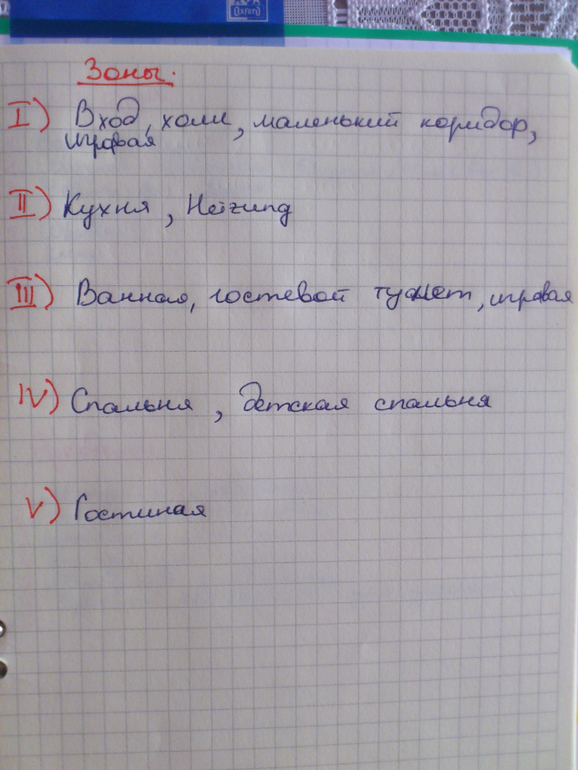 Oxford
Зоны.
I) Вход, холл, маленький коридор,
игровая
II) Кухня, Heizung
III) Ванная, гостевой туалет, игровая
IV) Спальня, детская спальня
V) Гостиная